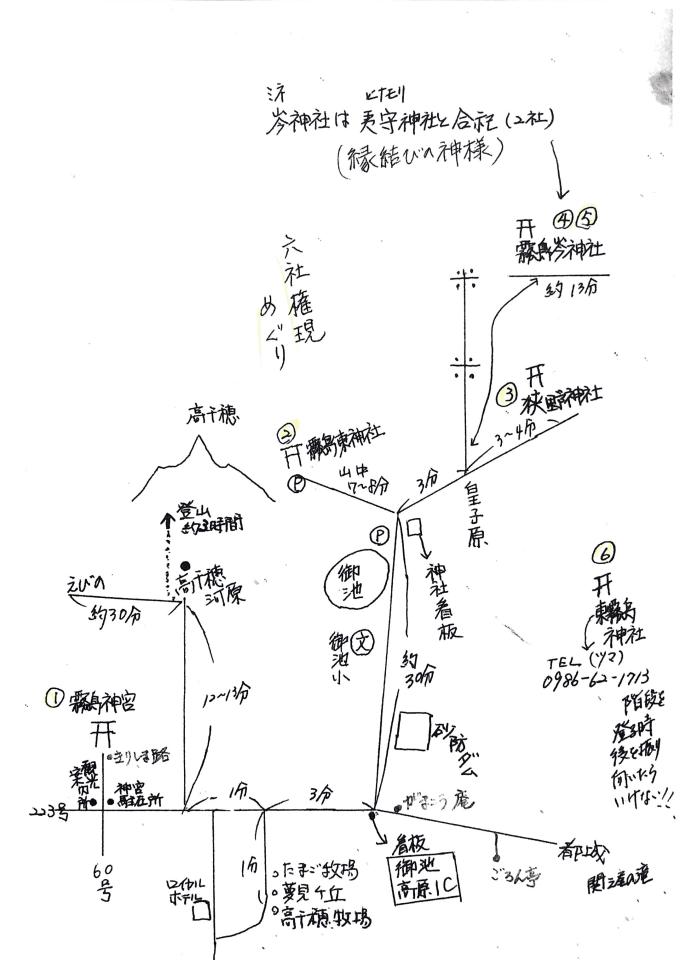 ミネ
ヒナモリ
岑神社は夷守神社と合祀(2社)
(縁結びの神様)
六社権現
めぐり
④⑤
霧島岑神社
約13分
③
狭野神社
3〜4分
皇子原
3分
②
霧島東神社
山中
7〜8分
P
P
神社看板
御池
文
御池小
約
30分
砂防ダム
高千穂
登山
高千穂
河原
えびの
約30分
12〜13分
①霧島神宮
きりしま路
観光
案内所
神宮
駐在所
223号
60号
1分
3分
1分
ロイヤル
ホテル
たまご牧場
夢見ケ丘
高千穂牧場
がまこう庵
看板
御池
高原IC
ごろん亭
都城
関之尾の滝
⑥
東霧島
神社
(ツマ)
TEL
0986-62-1713
階段を
登る時
後を振り
向いたら
いけない!!